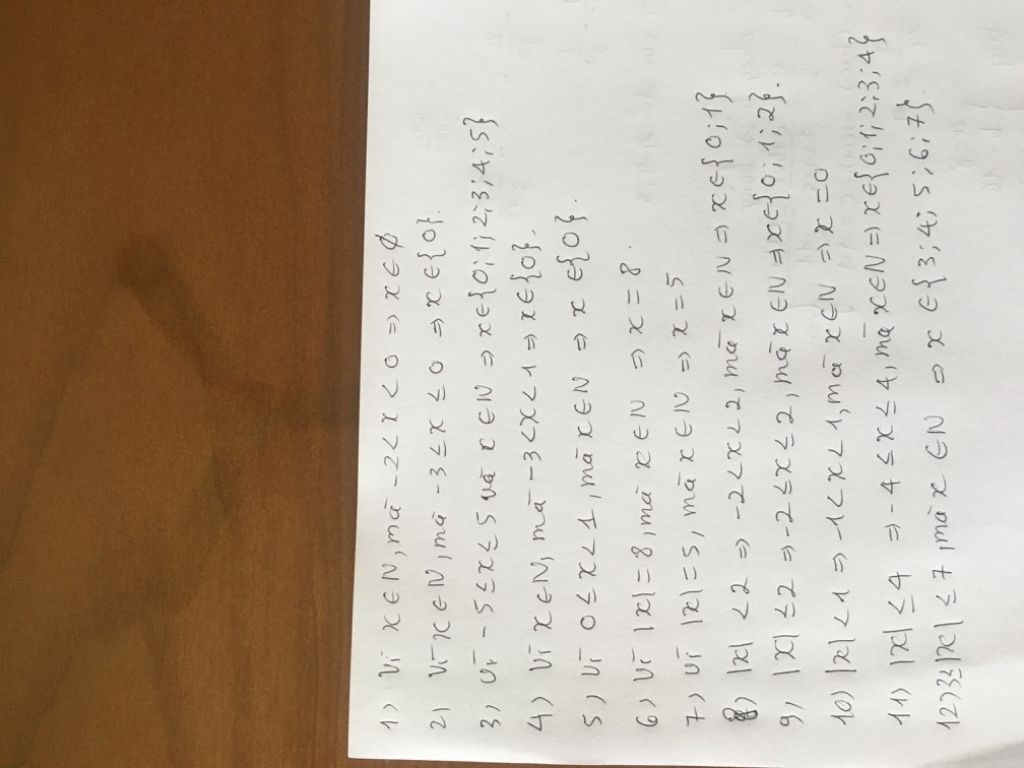 1) Vì x ∈ N, mà -2 < x < 0 => x ∈ ∅
2) Vì x ∈ N, mà -3 ≤ x ≤ 0 => x ∈ {0}.
3) Vì -5 ≤ x ≤ 5 và x ∈ N => x ∈ {0;1;2;3;4;5}
4) Vì x ∈ N, mà -3 < x < 1 => x ∈ {0}.
5) Vì 0 ≤ x < 1, mà x ∈ N => x ∈ {0}.
6) Vì |x| = 8, mà x ∈ N => x = 8.
7) Vì |x| = 5, mà x ∈ N => x = 5
8) |x| < 2 => -2 < x < 2, mà x ∈ N => x ∈ {0;1}
9) |x| ≤ 2 => -2 ≤ x ≤ 2, mà x ∈ N => x ∈ {0;1;2}.
10) |x| < 1 => -1 < x < 1, mà x ∈ N => x = 0
11) |x| ≤ 4 => -4 ≤ x ≤ 4, mà x ∈ N => x ∈ {0;1;2;3;4}
12) 3 ≤ |x| ≤ 7, mà x ∈ N => x ∈ {3;4;5;6;7}.